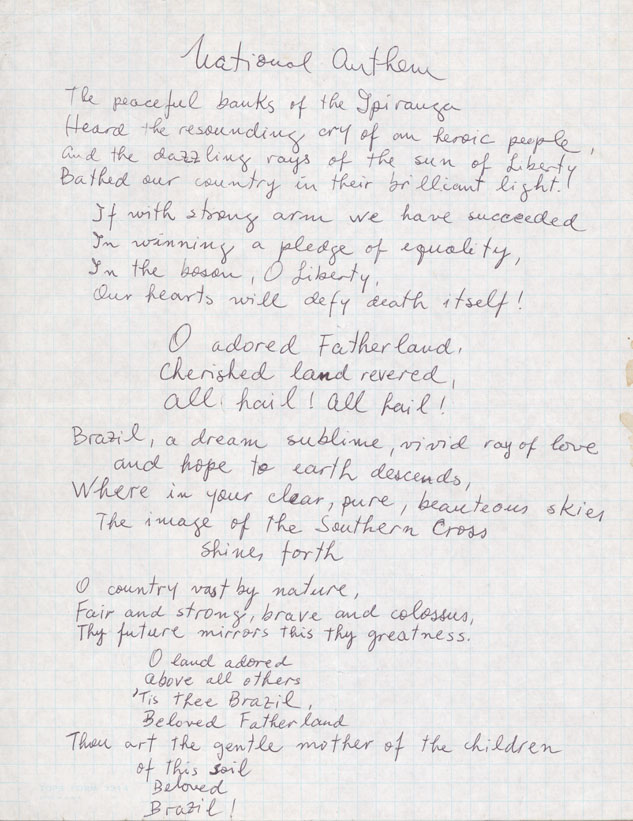 National Anthem
The peaceful banks of the Ipiranga
Heard the resounding cry of an heroic people,
and the dazzling rays of the sun of Liberty
Bathed our country in their brilliant light.
If with strong arm we have succeeded
In winning a pledge of equality,
In the bosom, O Liberty,
Our hearts will defy death itself!
O adored Fatherland,
Cherished land revered,
all hail! All hail!
Brazil, a dream sublime, vivid ray of love
and hope to earth descends,
Where in your clear, pure, beauteous skies
The image of the Southern Cross
Shines forth
O country vast by nature,
Fair and strong, brave and colossus,
Thy future mirrors this thy greatness.
O land adored
above all others
'Tis thee Brazil,
Beloved Fatherland
Thou art the gentle mother of the children
of this soil
Beloved
Brazil!